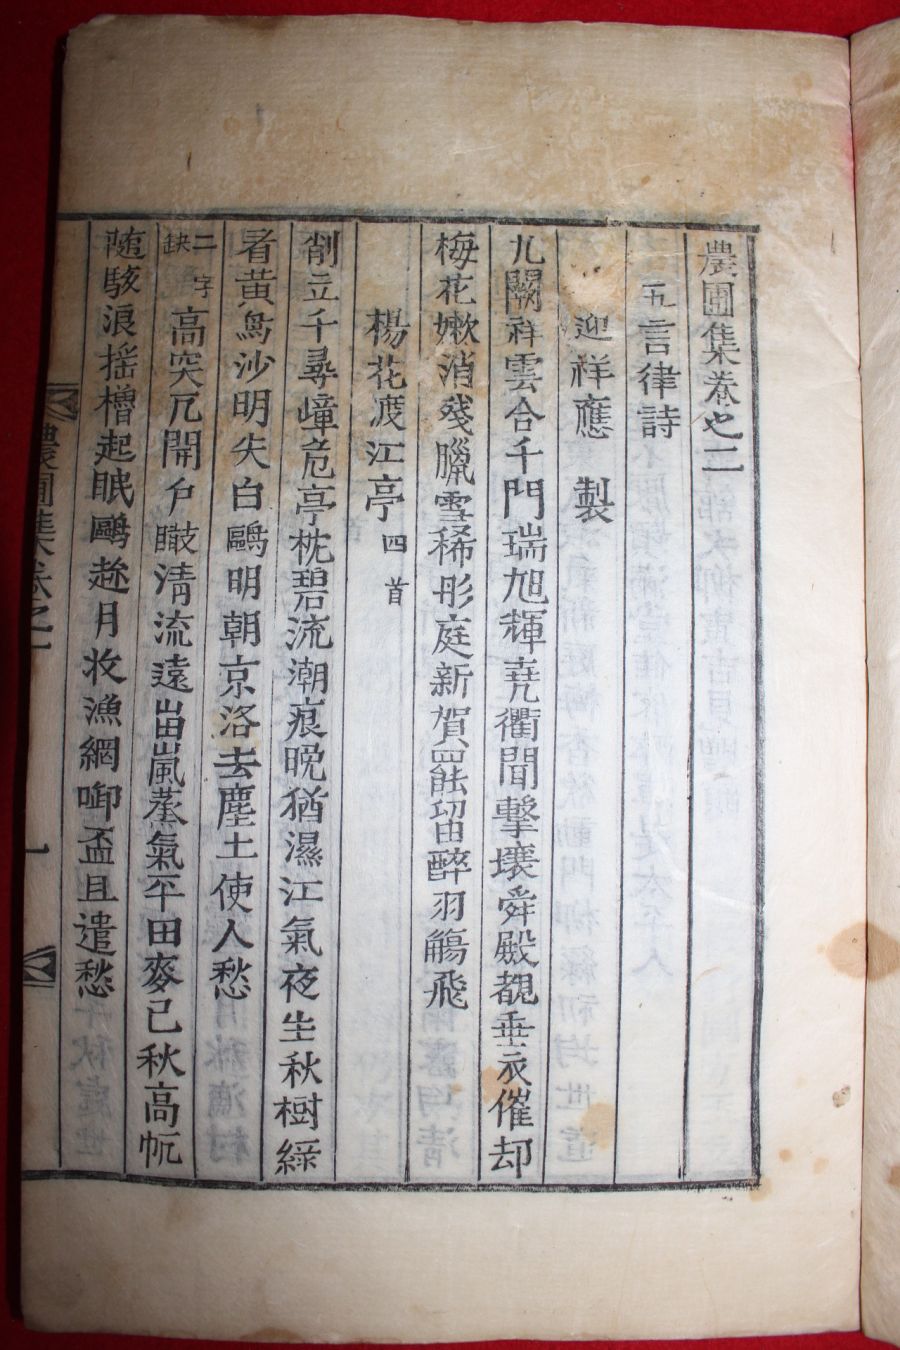 農圃集卷之二
五言律詩
迎祥應製
九闕祥雲合千門瑞旭輝堯衢聞擊壤舜殿覩垂衣催却
梅花嫩消殘臘雪稀彤庭新賀罷餘留醉羽觴飛
楊花渡江亭四首
削立千尋嶂危亭枕碧流潮痕晩猶濕江氣夜生秋樹綠
看黃鳥沙明失白鷗明朝京洛去塵土使人愁
二字缺高突兀開戶瞰淸流遠峀嵐蒸氣平田麥已秋高帆
隨駭浪搖櫓起眠鷗趂月收漁網啣盃且遣愁
農圃集卷之二 一